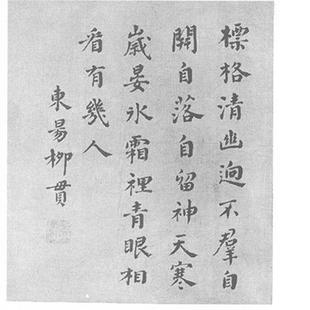 標格清幽迥不羣自
開自落自留神天寒
歲晏氷霜裡青眼相
看有幾人
東昜柳貫